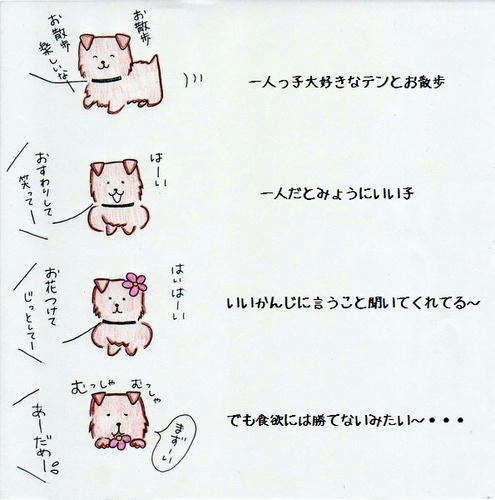 お散歩
お散歩
楽しいな
一人っ子大好きなテンとお散歩
はーい
おすわりして
笑ってー
一人だとみょうにいい子
はいはーい
お花つけて
じっとしてー
いいかんじに言うこと聞いてくれてる～
むっしゃ
むっしゃ
まずーい
あーだめー。
でも食欲には勝てないみたい～・・・